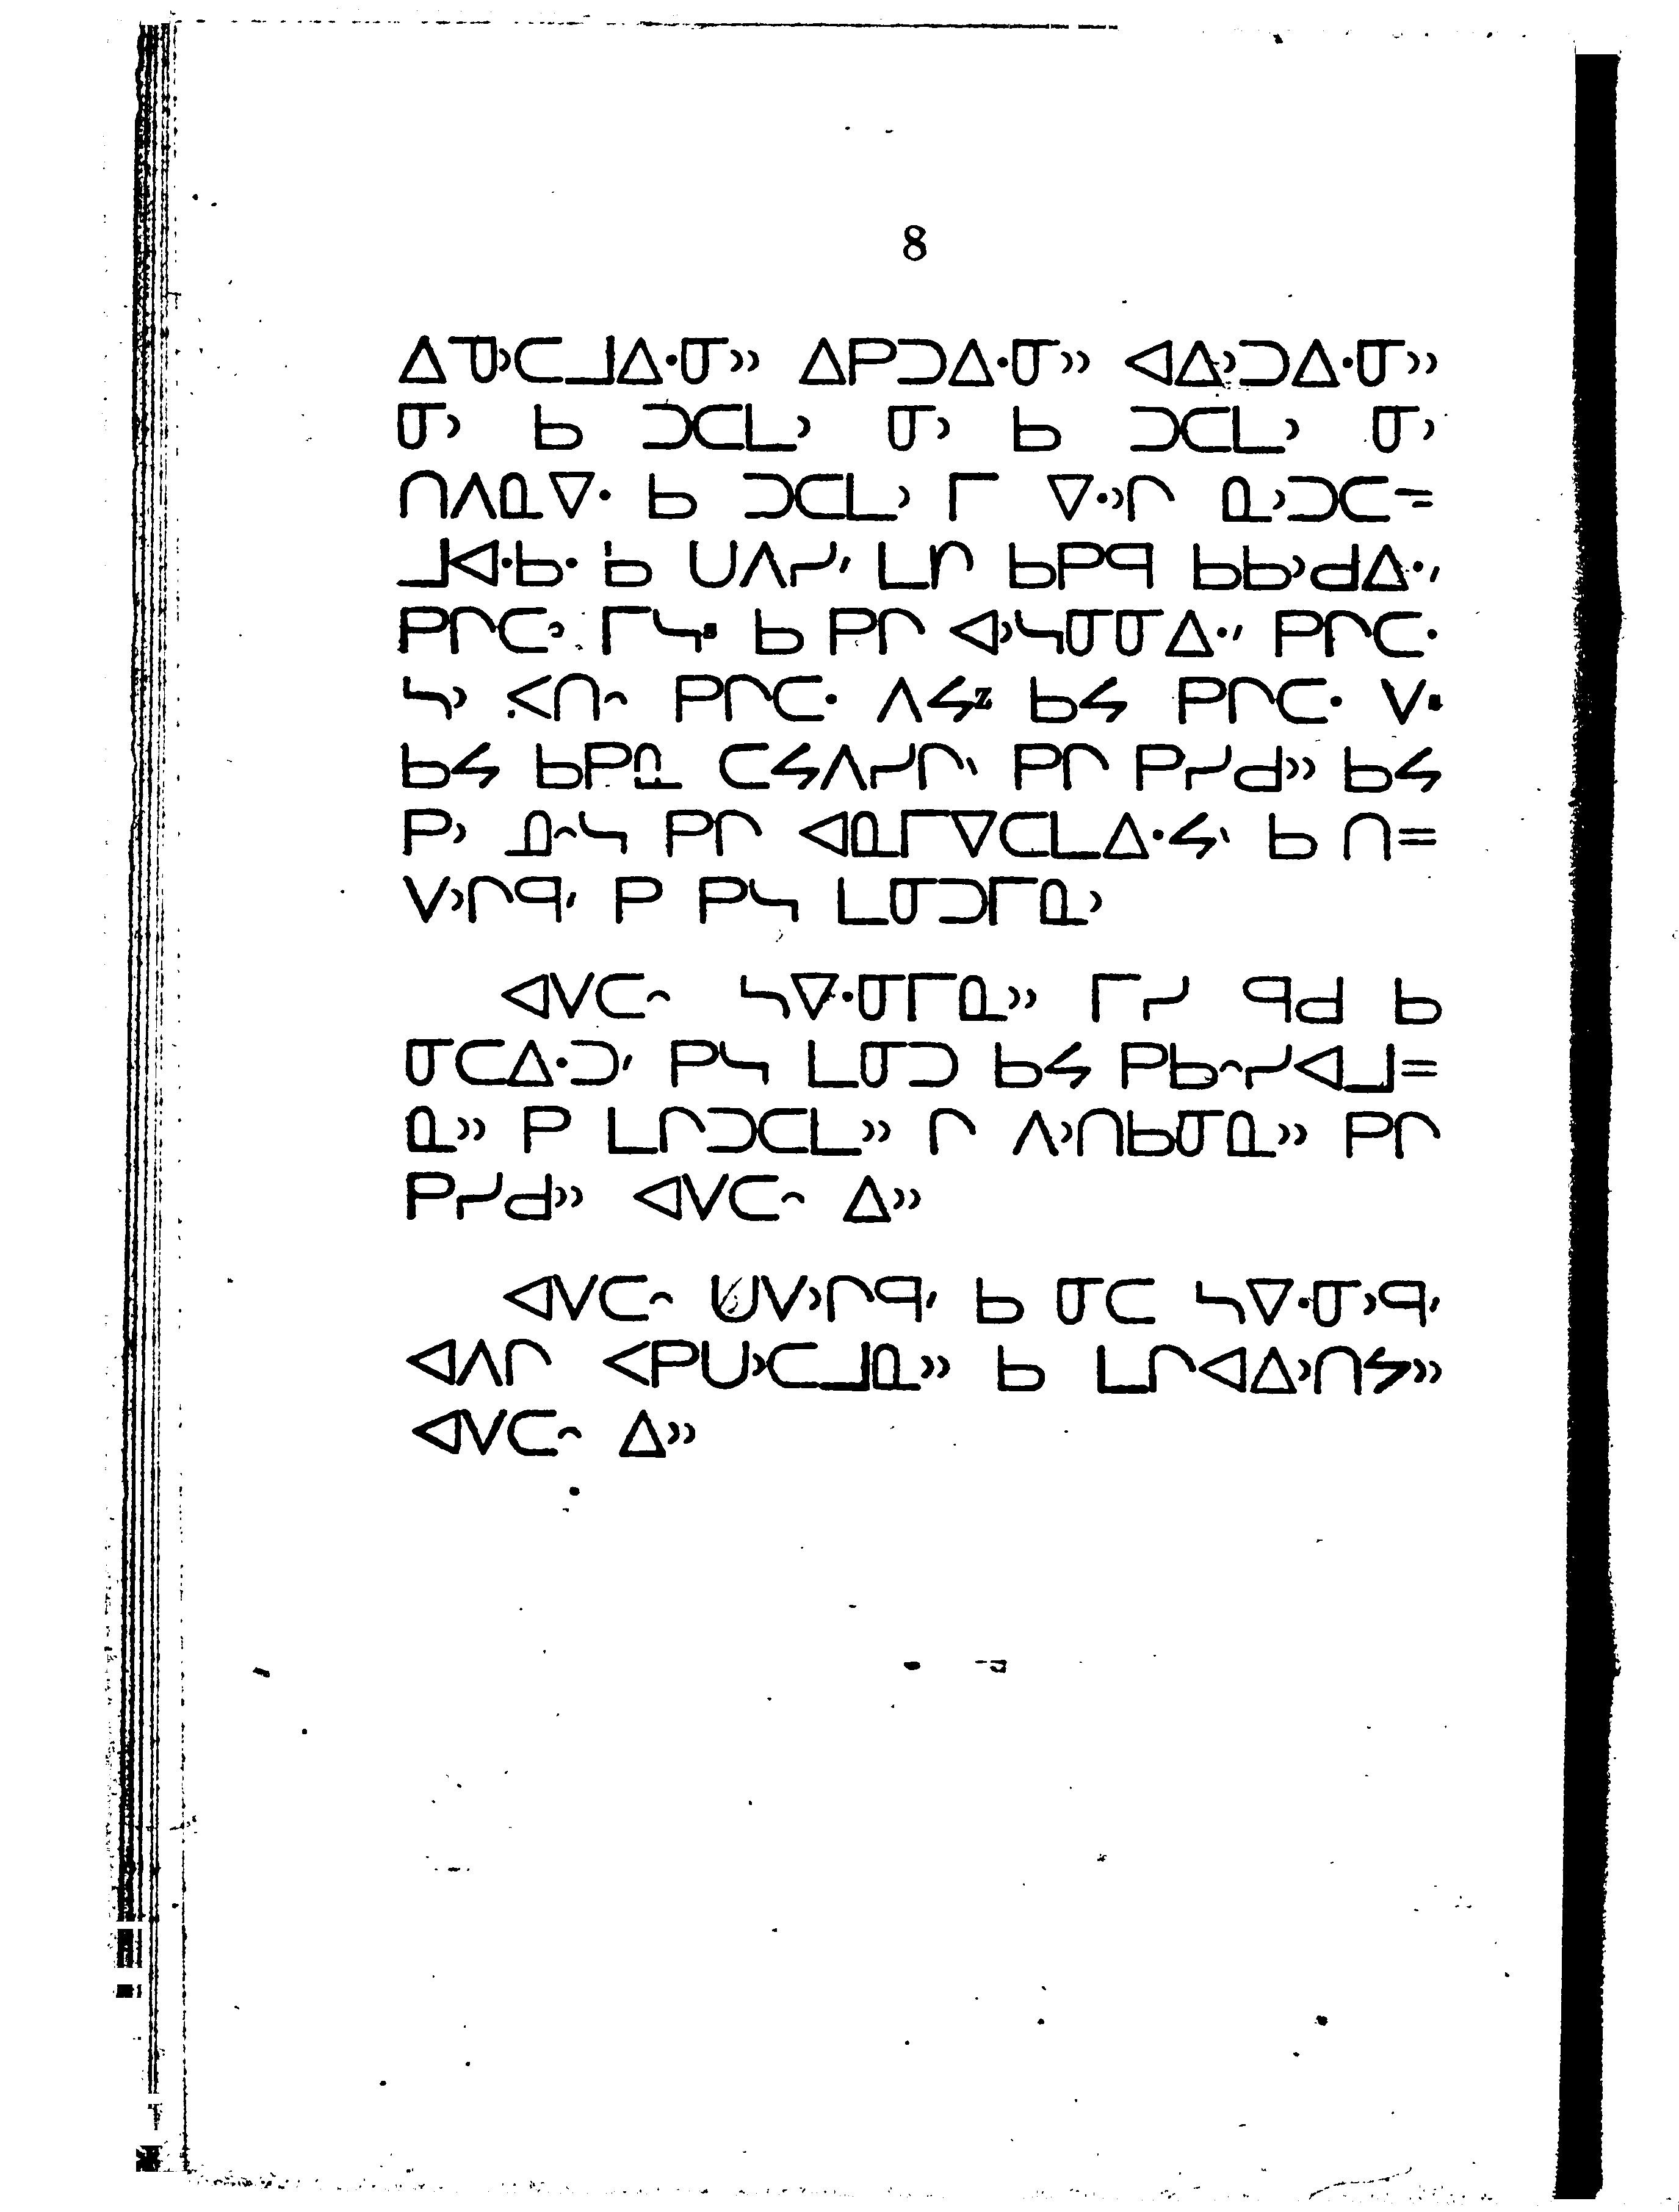 8
ᐃᓀᐣᑕᒧᐃᐧᓂᐣᐣ ᐃᑭᑐᐃᐧᓂᐣᐣ ᐊᐃᐣᑐᐃᐧᓂᐣᐣ
ᓂᐣ ᑲ ᑐᑕᒪᐣ ᓂᐣ ᑲ ᑐᑕᒪᐣ ᓂᐣ
ᑎᐱᓇᐁᐧ ᑲ ᑐᑕᒪᐣ ᒥ ᐁᐧᐣᒋ ᓇᐣᑐᑕ=
ᒧᐊᐧᑲᐧ ᑲ ᑌᐱᓯᐟ ᒪᒋ ᑲᑭᑫ ᑲᑲᐣᑯᐃᐧᐟ
ᑭᒋᑕᐧ ᒥᓴᐠ ᑲ ᑭᒋ ᐊᐣᓴᓂᓂᐃᐧᐟ ᑭᒋᑕᐧ
ᓴᐣ ᐸᑎᐢ ᑭᒋᑕᐧ ᐱᔭᕒ ᑲᔭ ᑭᒋᑕᐧ ᐯᐠ
ᑲᔭ ᑲᑭᓇ ᑕᔕᐱᓯᒋᐠ ᑭᒋ ᑭᓯᑯᐣᐣ ᑲᔭ
ᑭᐣ ᓄᐢᓴ ᑭᒋ ᐊᓇᒥᐁᑕᒪᐃᐧᔭᐠ ᑲ ᑎ=
ᐯᐣᒋᑫᐟ ᑭ ᑭᓴ ᒪᓂᑐᒥᓇᐣ
ᐊᐯᑕᐢ ᓴᐁᐧᓂᒥᓇᐣᐣ ᒥᓯ ᑫᑯ ᑲ
ᓂᑕᐃᐧᑐᐟ ᑭᓴ ᒪᓂᑐ ᑲᔭ ᑭᑲᐢᓯᐊᒧ=
ᓇᐣᐣ ᑭ ᒪᒋᑐᑕᒪᐣᐣ ᒋ ᐱᐣᑎᑲᓂᓇᐣᐣ ᑭᒋ
ᑭᓯᑯᐣᐣ ᐊᐯᑕᐢ ᐃᐣᐣ
ᐊᐯᑕᐢ ᑌᐯᐣᒋᑫᐟ ᑲ ᓂᑕ ᓴᐁᐧᓂᐣᑫᐟ
ᐊᐱᒋ ᐸᑭᑌᐣᑕᒧᓇᐣᐣ ᑲ ᒪᒋᐊᐃᐣᑎᔭᐣᐣ
ᐊᐯᑕᐢ ᐃᐣᐣ